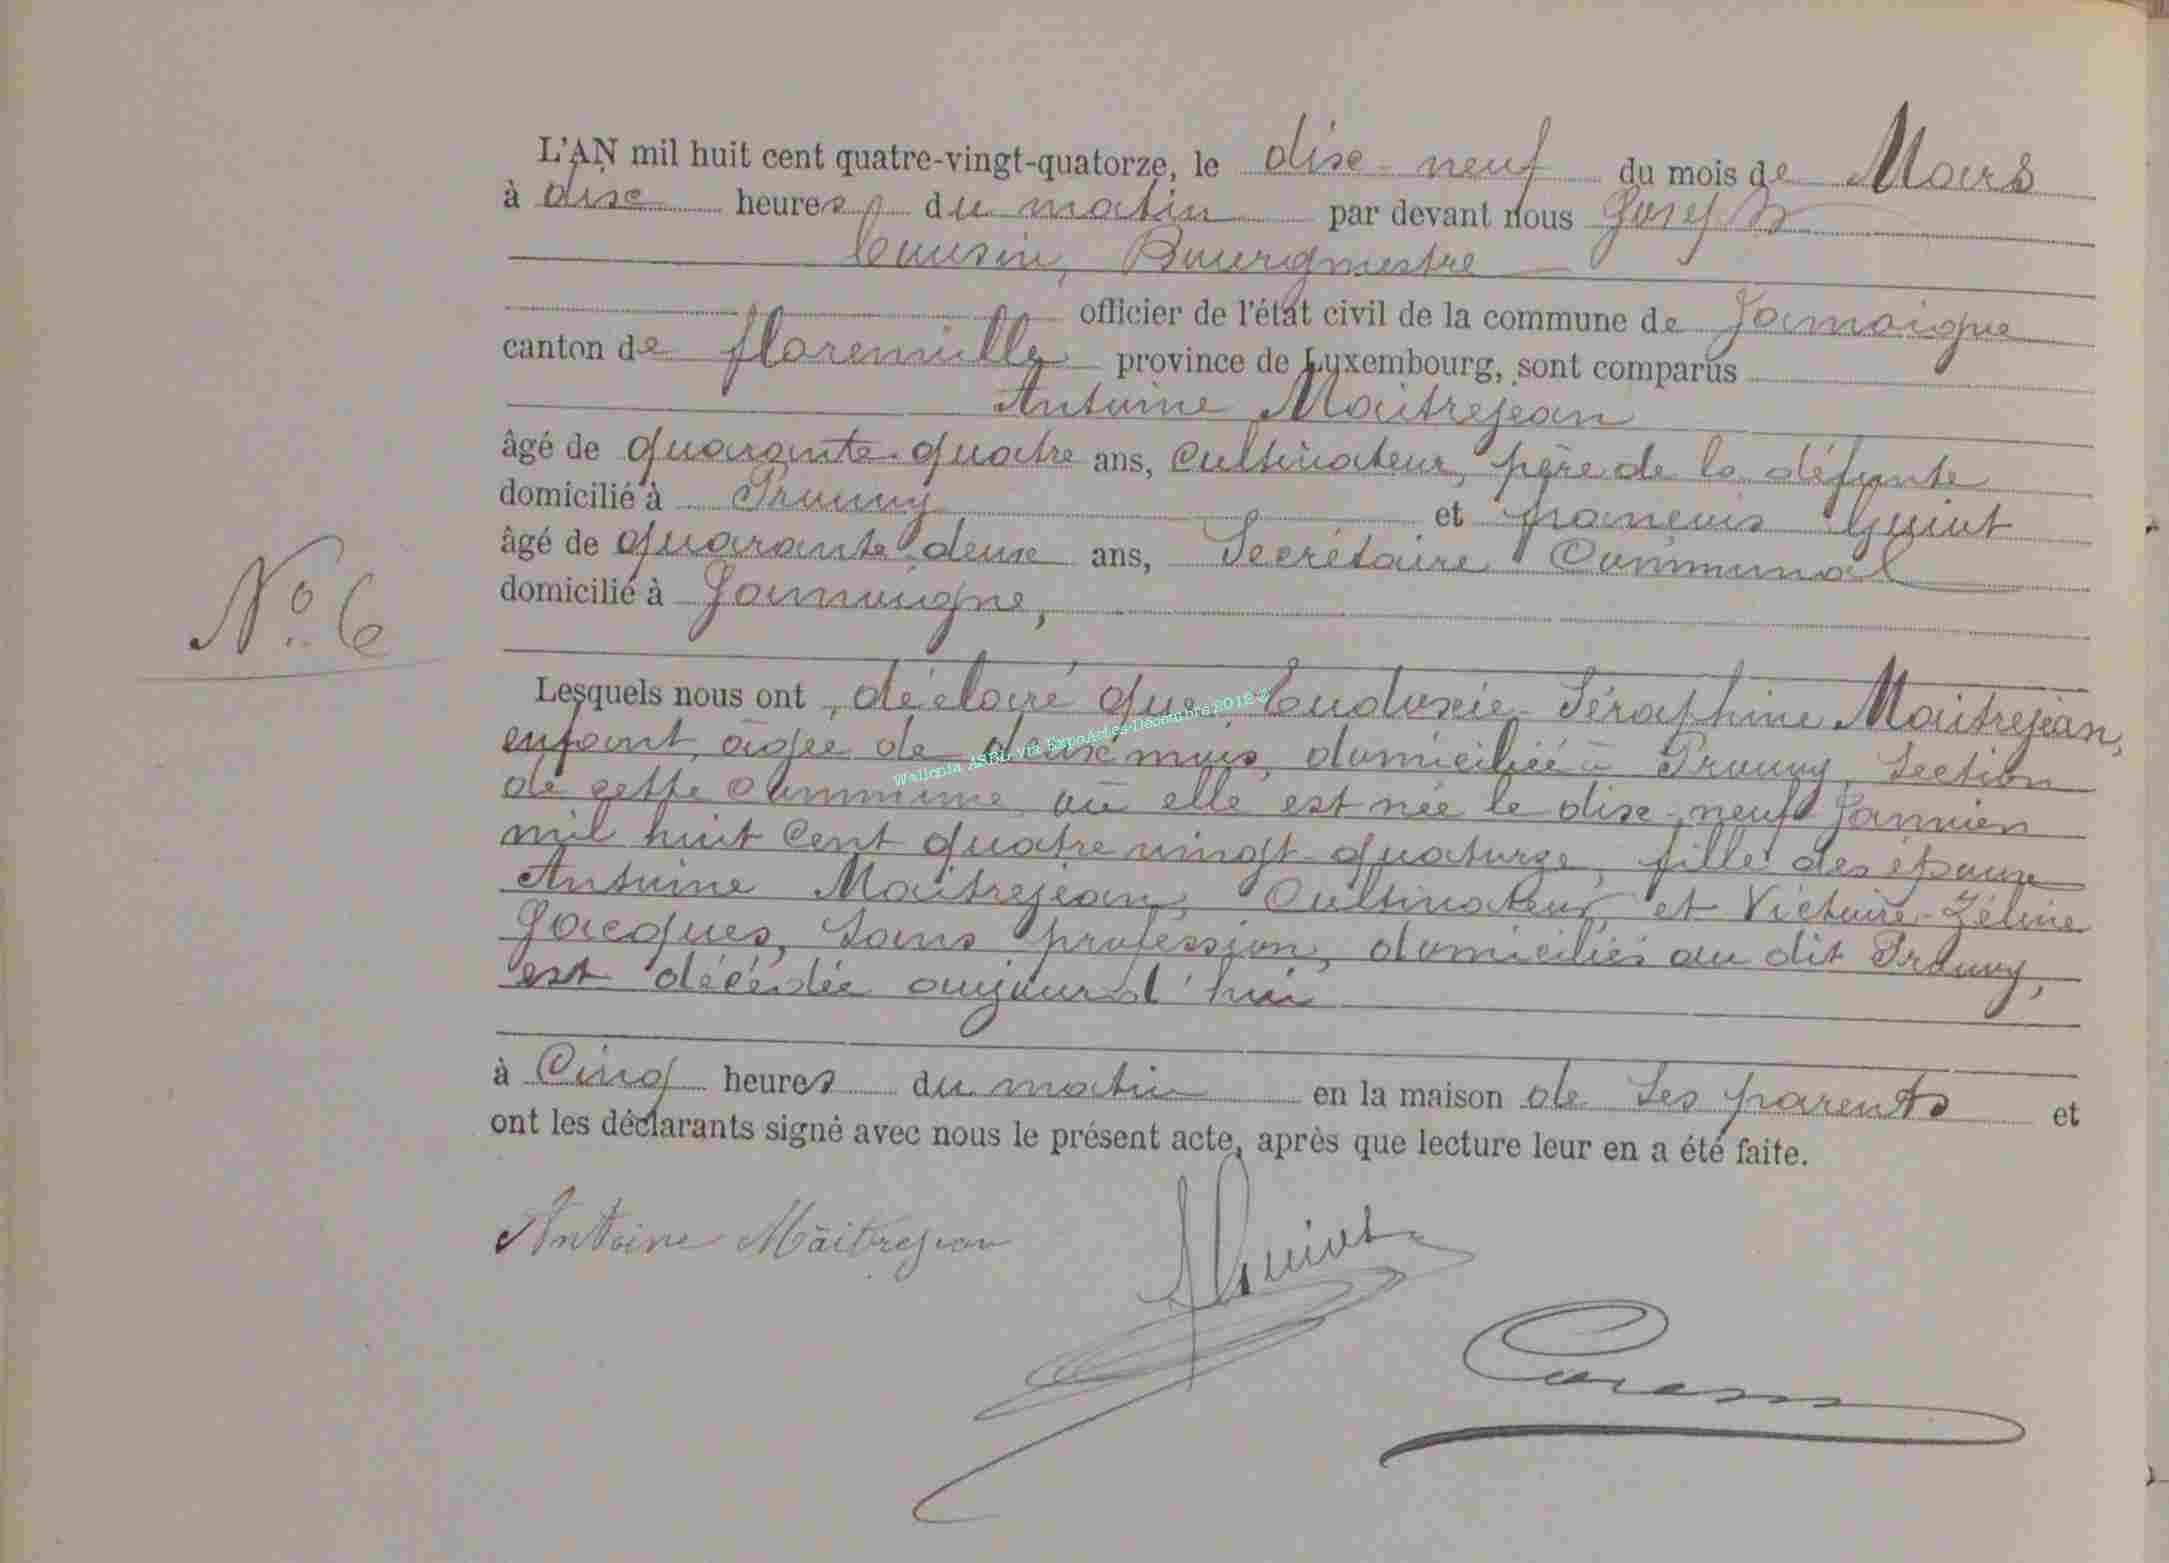 L'AN mil huit cent quatre-vingt-quatorze, le dix-neuf du mois de Mars
à dix heures du matin par devant nous Joseph
Cousin, Bourgmestre
officier de l'état civil de la commune de Jamoigne
canton de florenville province de Luxembourg, sont comparus
Antoine Maitrejean
âgé de quarante-quatre ans, Cultivateur, père de la défunte
domicilié à Prouvy et françois Guiot
âgé de quarante-deux ans, Secrétaire Communal
domicilié à Jamoigne,
N° 6
Lesquels nous ont déclaré que Eudoxie-Séraphine Maitrejean,
enfant, âgée de deux mois, domiciliée à Prouvy, Section
de cette Commune où elle est née le dix-neuf Janvier
mil huit Cent quatre vingt-quatorze, fille des époux
Antoine Maitrejean, Cultivateur, et Victoire-Zéline
Jacques, Sans profession, domiciliés au dit Prouvy,
est décédée aujourd'hui
à Cinq heures du matin en la maison de Ses parents et
ont les déclarants signé avec nous le présent acte, après que lecture leur en a été faite.
Antoine Maitrejean
Guiot
Wallonia ASBL Via ExpoActes-Décembre 2012